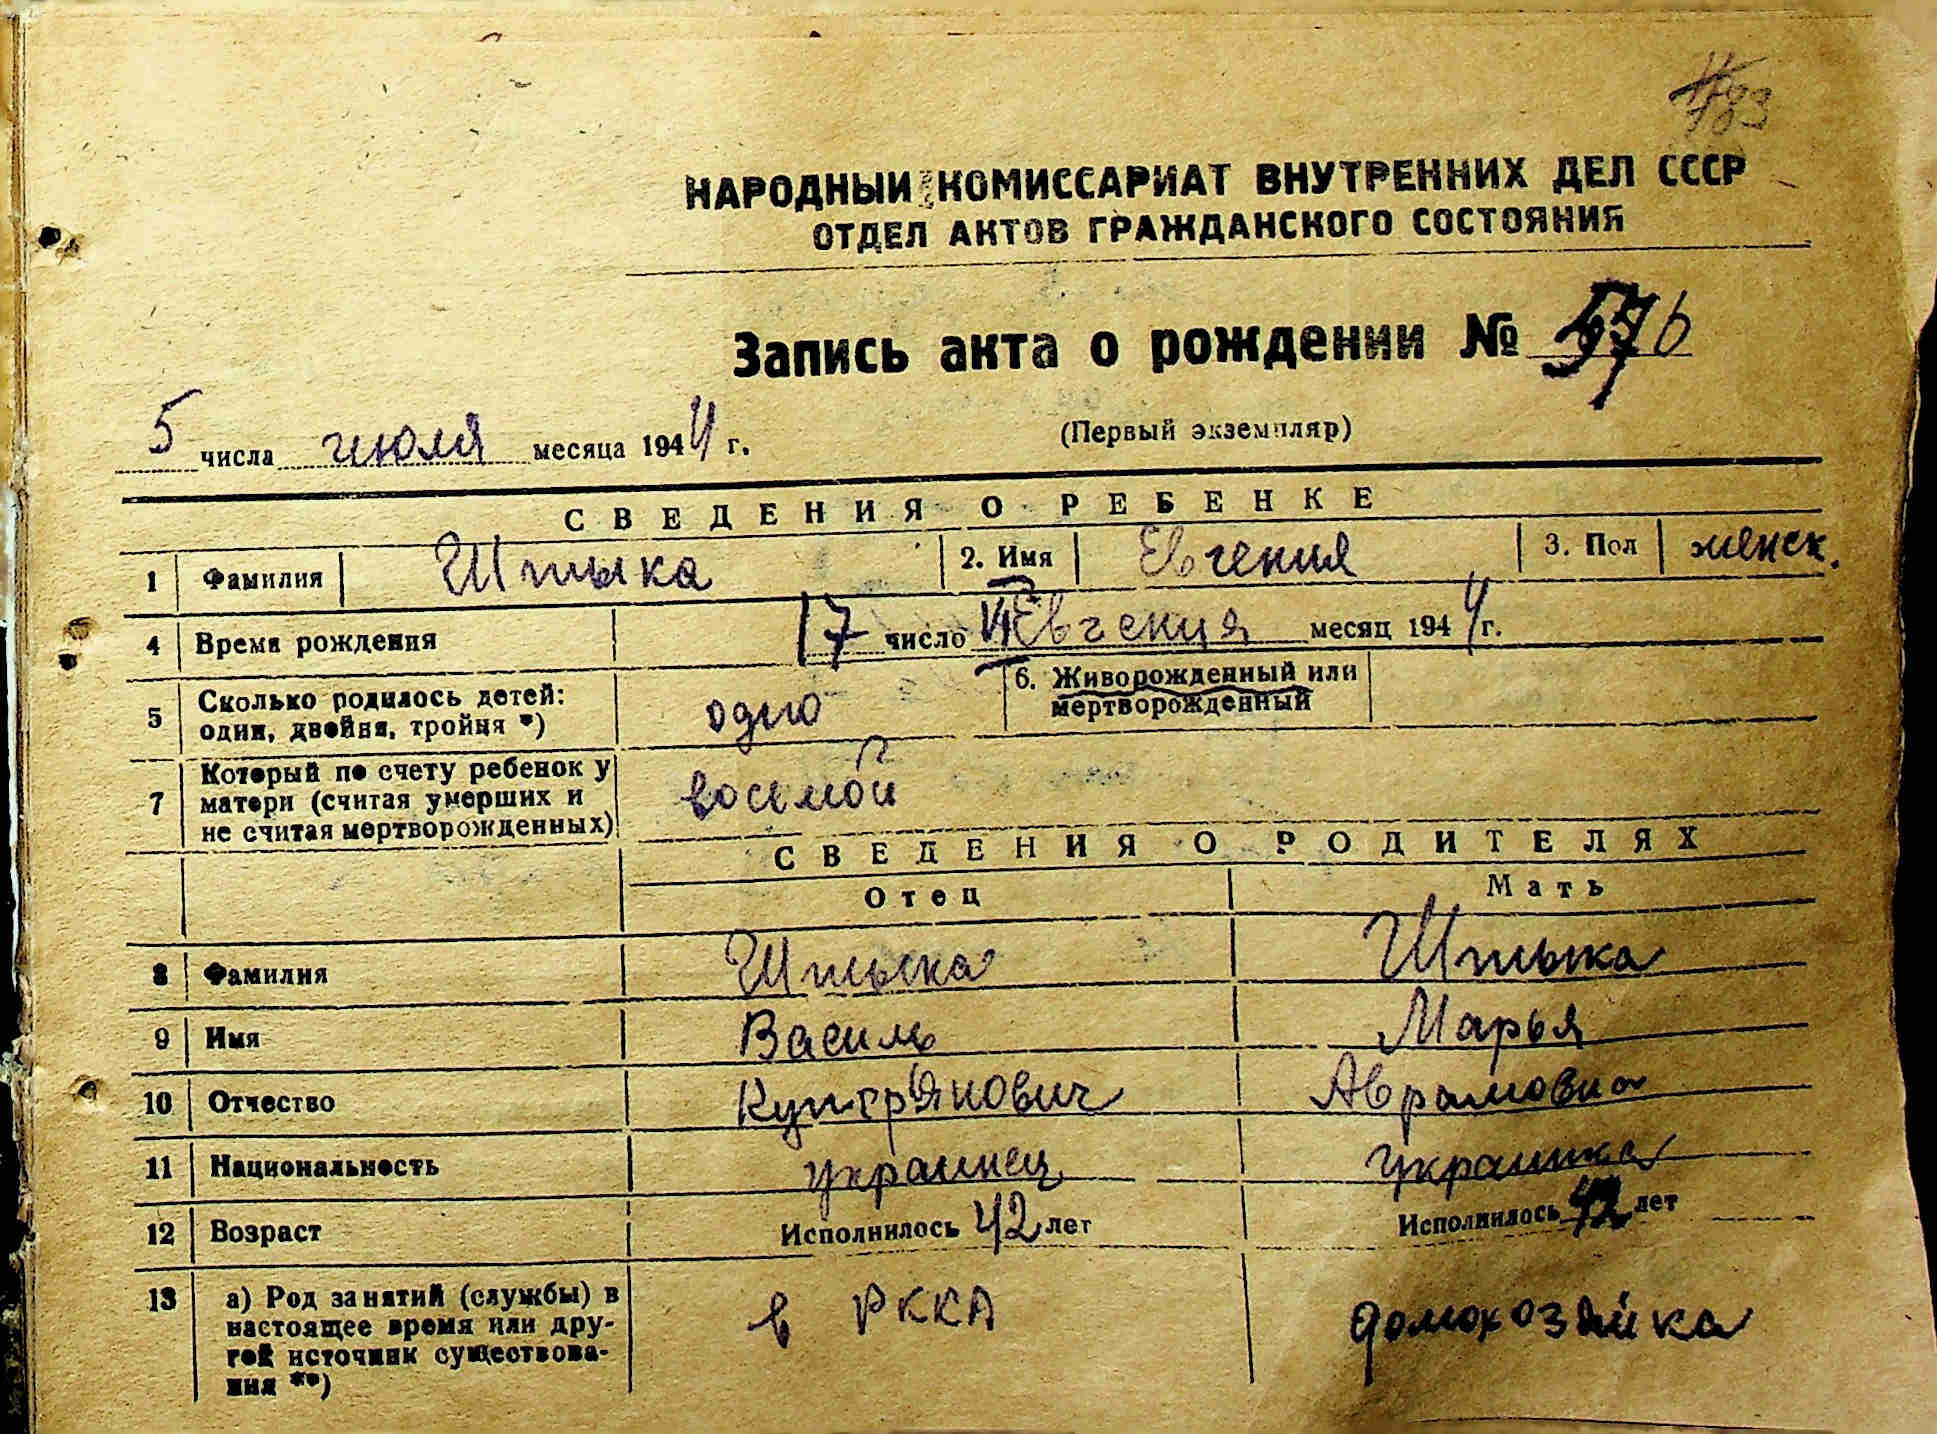 НАРОДНЫЙ КОМИССАРИАТ ВНУТРЕННИХ ДЕЛ СССР
ОТДЕЛ АКТОВ ГРАЖДАНСКОГО СОСТОЯНИЯ
Запись акта о рождении №
5 числа июля месяца 1944 г. (Первый экземпляр)
СВЕДЕНИЯ О РЕБЕНКЕ
1 Фамилия Штыка 2. Имя Евгения 3. Пол женск.
4 Время рождения 17 число VI Евгения месяц 1944 г.
5 Сколько родилось детей: один, двойня, тройня *) одно 6. Живорожденный или мертворожденный
7 Который по счету ребенок у матери (считая умерших и не считая мертворожденных) восьмой
СВЕДЕНИЯ О РОДИТЕЛЯХ
Отец Мать
8 Фамилия Штыка Штыка
9 Имя Василь Марья
10 Отчество Куприянович Аврамовна
11 Национальность украинец украинка
12 Возраст Исполнилось 42 лет Исполнилось 42 лет
13 а) Род занятий (службы) в настоящее время или другой источник существования **) в РККА домохозяйка